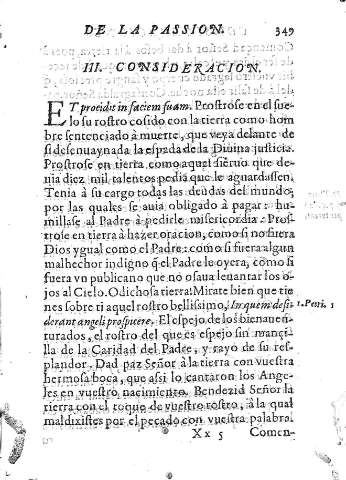 DE LA PASSION. 349
III. CONSIDERACION.
ET procidit in faciem suam. Prostrose en el sue
lo su rostro cosido con la tierra como hom
bre sentenciado à muerte, que veya delante de
si desenuaynada la espada de la Diuina justicia.
Prostrose en tierra como aquel sieruo que de-
uia diez mil talentos pedia que le aguardassen.
Tenia à su cargo todas las deudas del mundo,
por las quales se auia obligado à pagar: hu-
millase al Padre à pedirle misericordia. Pros-
trose en tierra à hazer oracion, como si no fuera
Dios ygual como el Padre: como si fuera algun
malhechor indigno q̃ el Padre le oyera, como si
fuera vn publicano que no osaua leuantar los o-
jos al Cielo. O dichosa tierra! Mirate bien que tie
nes sobre ti aquel rostro bellissimo, In quem desi- 1. Petri. 1
derant angeli prospicere. El espejo de los bienauen-
turados, el rostro del que es espejo sin manzi-
lla de la Caridad del Padre, y rayo de su res-
plandor. Dad paz Señor à la tierra con vuestra
hermosa boca, que assi lo cantaron los Ange-
les en vuestro nacimiento. Bendezid Señor la
tierra con el toque de vuestro rostro, à la qual
maldixistes por el peccado con vuestra palabra.
Xx 5 Comen-